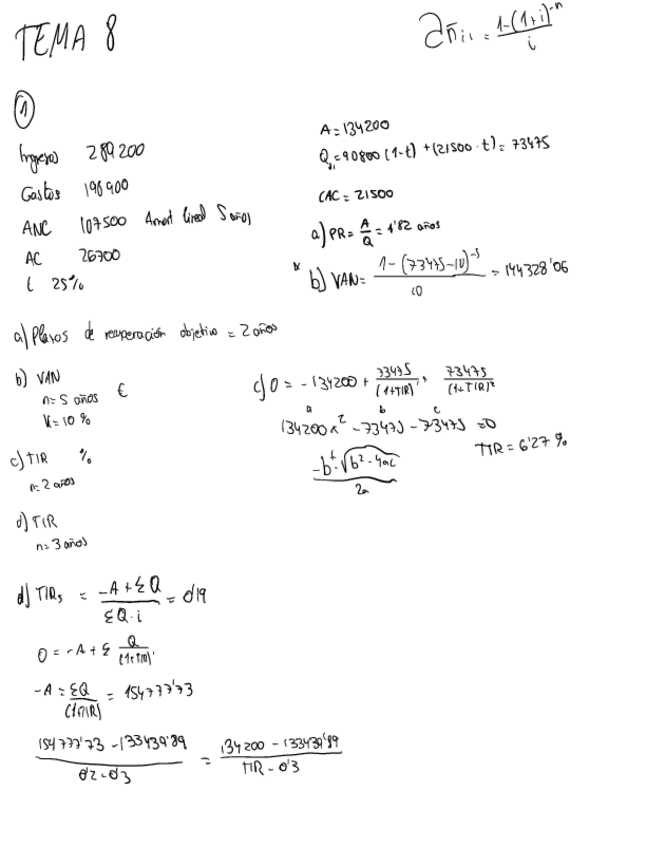 TEMA 8
an̄i = 1-(1+i)^-n / i
①
Ingresos 289200
Gastos 198400
ANC 107500 Amort lineal 5 años
AC 26700
t 25%
A = 134200
Q = 90800 (1-t) + (21500·t) = 73475
CAC = 21500
a) PR = A/Q = 1'82 años
b) VAN = 1-(73475-10)^-5 / 10 = 144328'06
a) Plazos de recuperación objetivo = 2 años
b) VAN
n = 5 años €
K = 10 %
c) TIR %
n = 2 años
d) TIR
n = 3 años
c) 0 = -134200 + 73475/(1+TIR)' + 73475/(1+TIR)²
a b c
134200x² - 73475 - 73475 = 0
-b ± √(b² - 4ac) / 2a
TIR = 6'27 %
d) TIRs = -A + ΣQ / ΣQ·i = 0'19
0 = -A + Σ Q/(1+TIR)'
-A = ΣQ/(1+TIR) = 154777'73
154777'73 - 133439'89 / 0'2-0'3 = 134200 - 133439'89 / TIR - 0'3